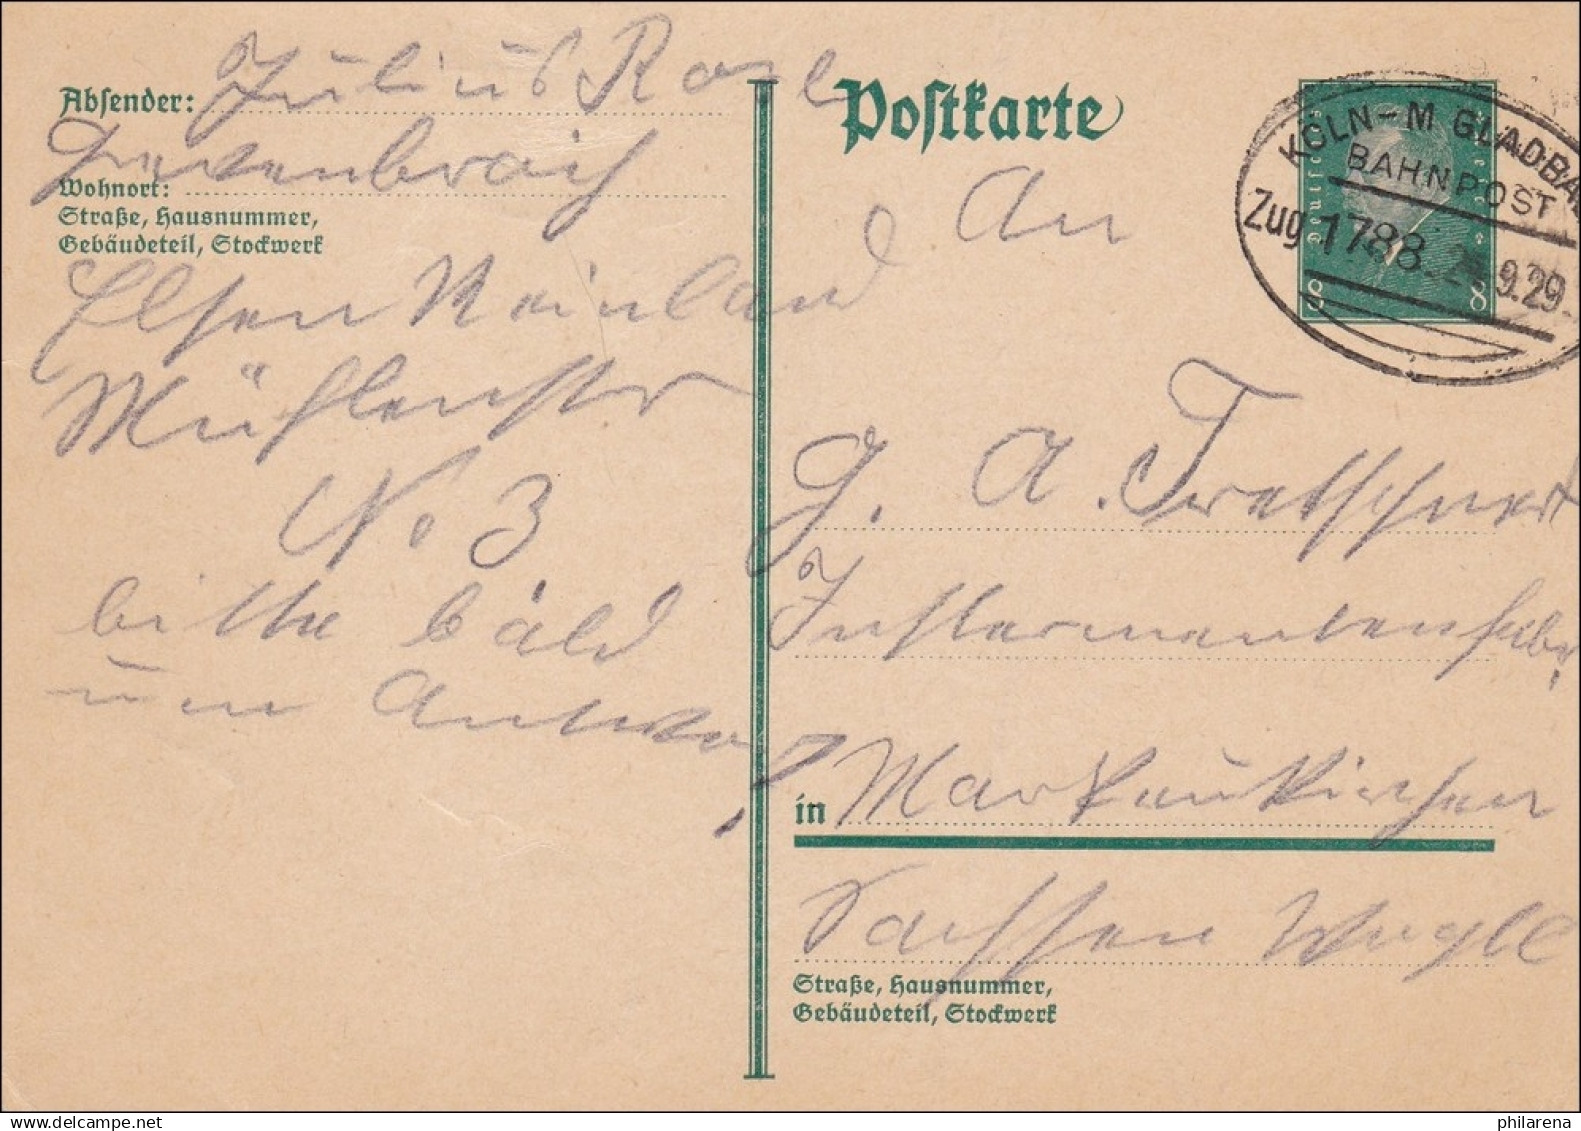 Absender: Julius Rose
Wohnort:
Straße, Hausnummer,
Gebäudeteil, Stockwerk
Elsen Reinland
Mühlenstr
No 3
bitte bald
um Antwort
Postkarte
KÖLN - M GLADBA
BAHNPOST
Zug 1788 9.29
8 8
An
G. A.
in Markneukirchen
Sachsen
Straße, Hausnummer,
Gebäudeteil, Stockwerk
philarena